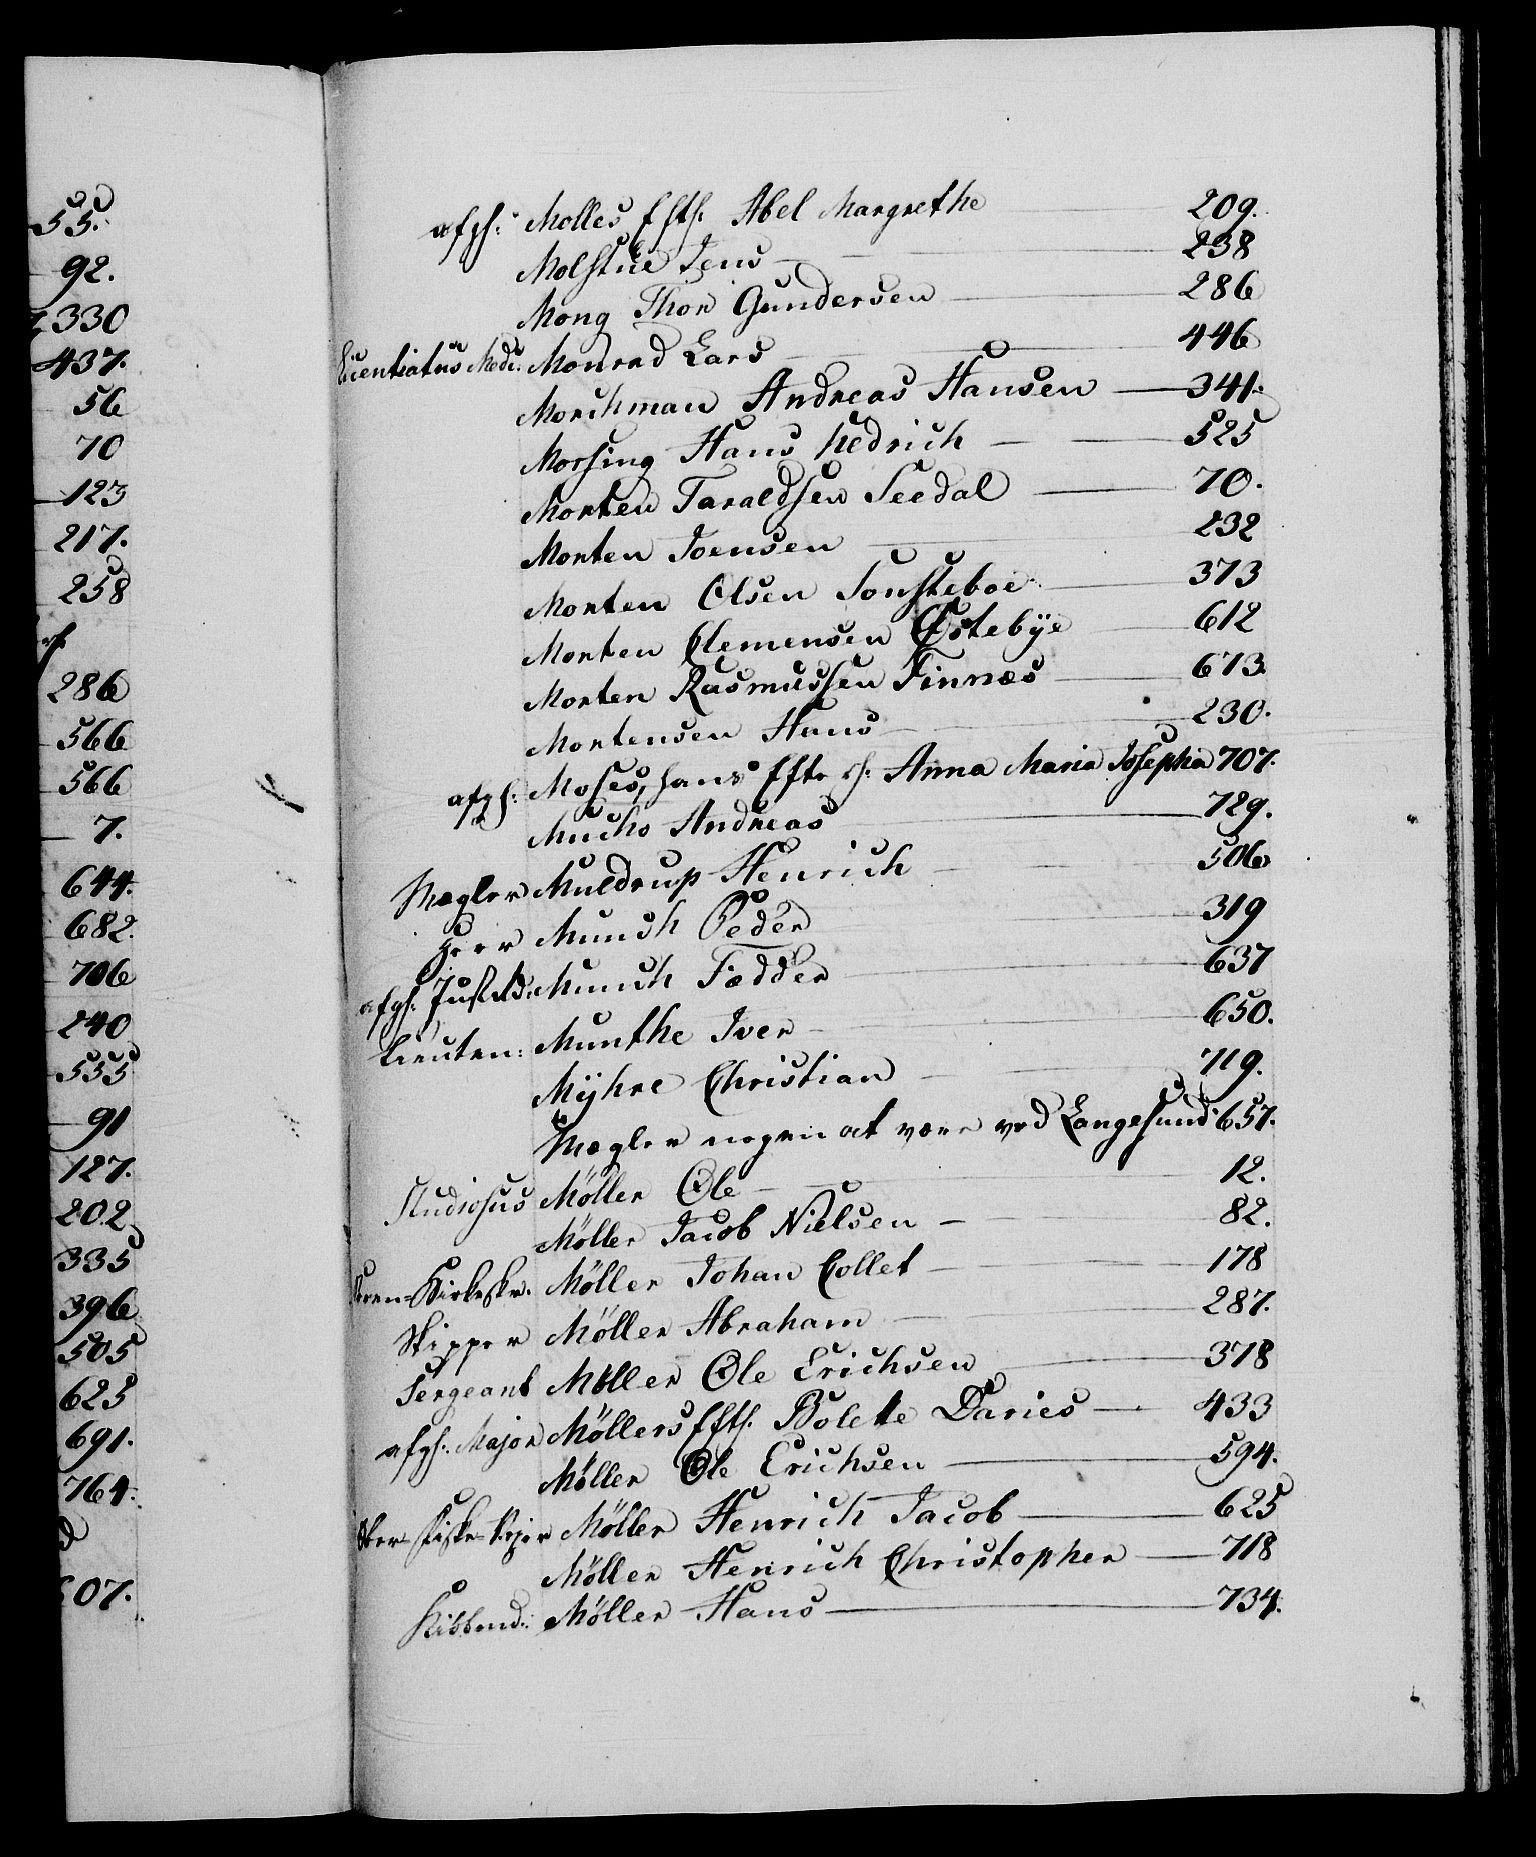 55.
92.
330
437.
56
70
123
217.
258
286
566
566
7.
644.
682.
706
240
555
91
127.
202
335
396
505
625
691.
764.
607.
afgh: Molles Efth. Abel Margrethe 209.
Molstue Jens 238
Mong Thor Gundersen 286
Licentiatus Medi: Monrad Lars 446
Morchman Andreas Hansen 341.
Morsing Hans Hedrich 525
Morten Taraldsen Seedal 70.
Morten Joensen 232
Morten Olsen Sonsteboe 373
Morten Clemensen Østebÿe 612
Morten Rasmussen Finnæs 673.
Mortensen Hans 230.
afgh: Moses, hans Efterh: Anna Maria Josepha 707.
Mucho Andreas 729.
Mægler Muldrup Henrich 506
Herr Munch Peder 319
afgh. Justitsr: Munch Fædder 637
Lieuten: Munthe Iver 650.
Mÿhre Christian 719.
Mægler nogen at være ved Langesund 657.
Studiosus Möller Ole 12.
Möller Jacob Nielsen 82.
Möller Johan Collet 178
Skipper Möller Abraham 287.
Sergeant Möller Ole Erichsen 378
afgh. Major Möllers Efth. Bolette Daries 433
Möller Ole Erichsen 594.
Möller Henrich Jacob 625
Möller Henrich Christopher 718
Kiöbmd: Möller Hans 734.